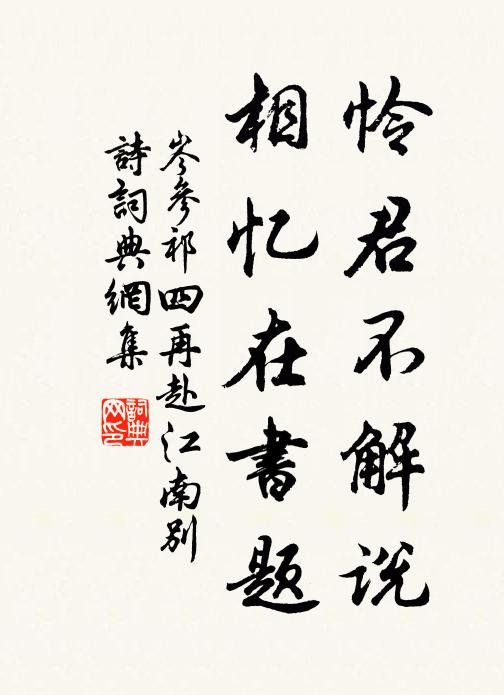 怜君不解说
相忆在書题
岑參祁四再赴江南别
詩詞典網集
詞典網印